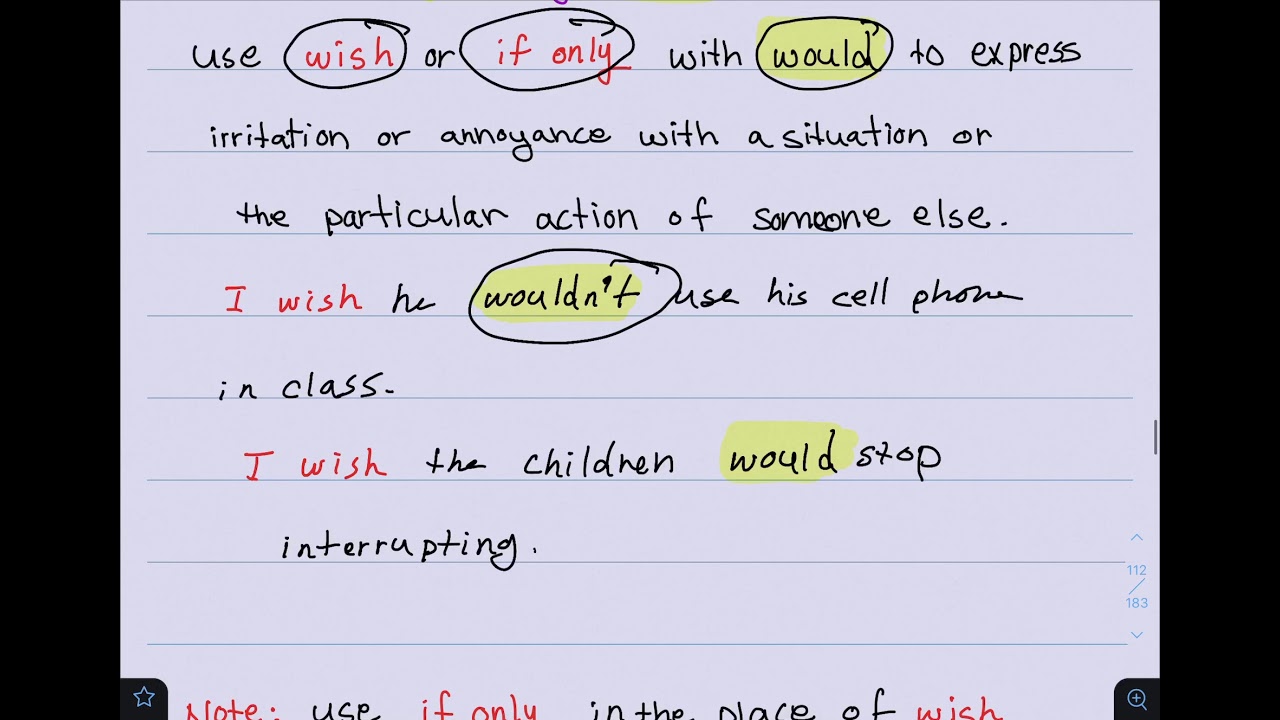 use wish or if only with would to express
irritation or annoyance with a situation or
the particular action of someone else.
I wish he wouldn't use his cell phone
in class.
I wish the children would stop
interrupting.
112
183
Note: use if only in the place of wish